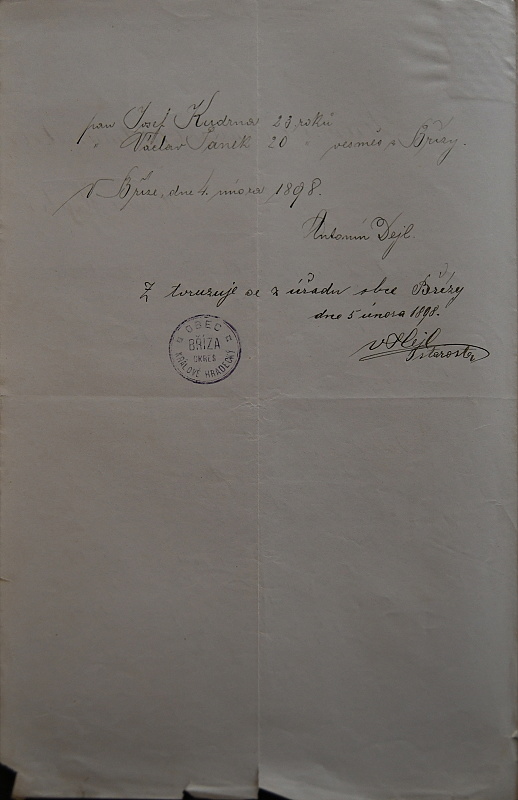 pan Josef Kudrna 23 roků
" Václav Vaněk 20 " vesměs z Břízy.
V Bříze, dne 4. února 1898.
Antonín Dejl.
Ztvrzuje se z úřadu obce Břízy
dne 5 února 1898.
OBEC
BŘÍZA
OKRES
KRÁLOVÉ HRADECKÝ
starosta